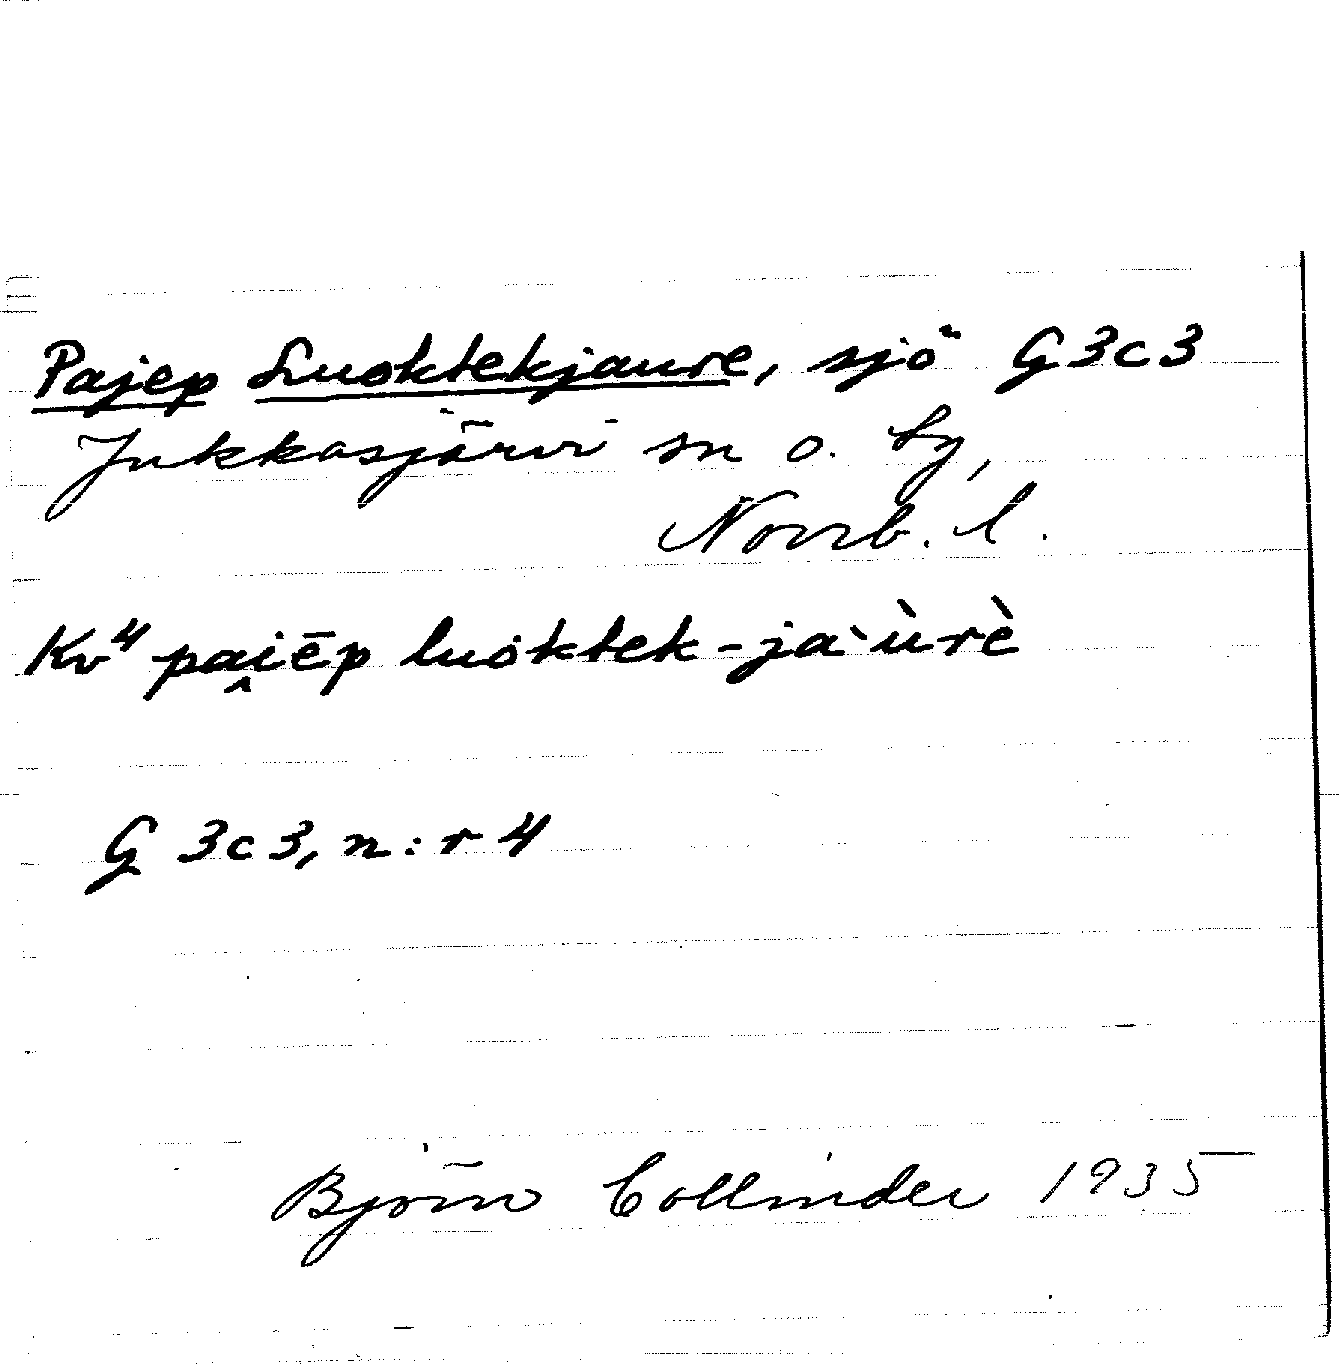 Pajep Luoktekjaure, sjö G3c3
Jukkasjärvi sn o. by,
Norrb. l.
Kv4 pai̭ēp luoktek-jaˋùrè
G 3c3, n:r 4
Björn Collinder 1935